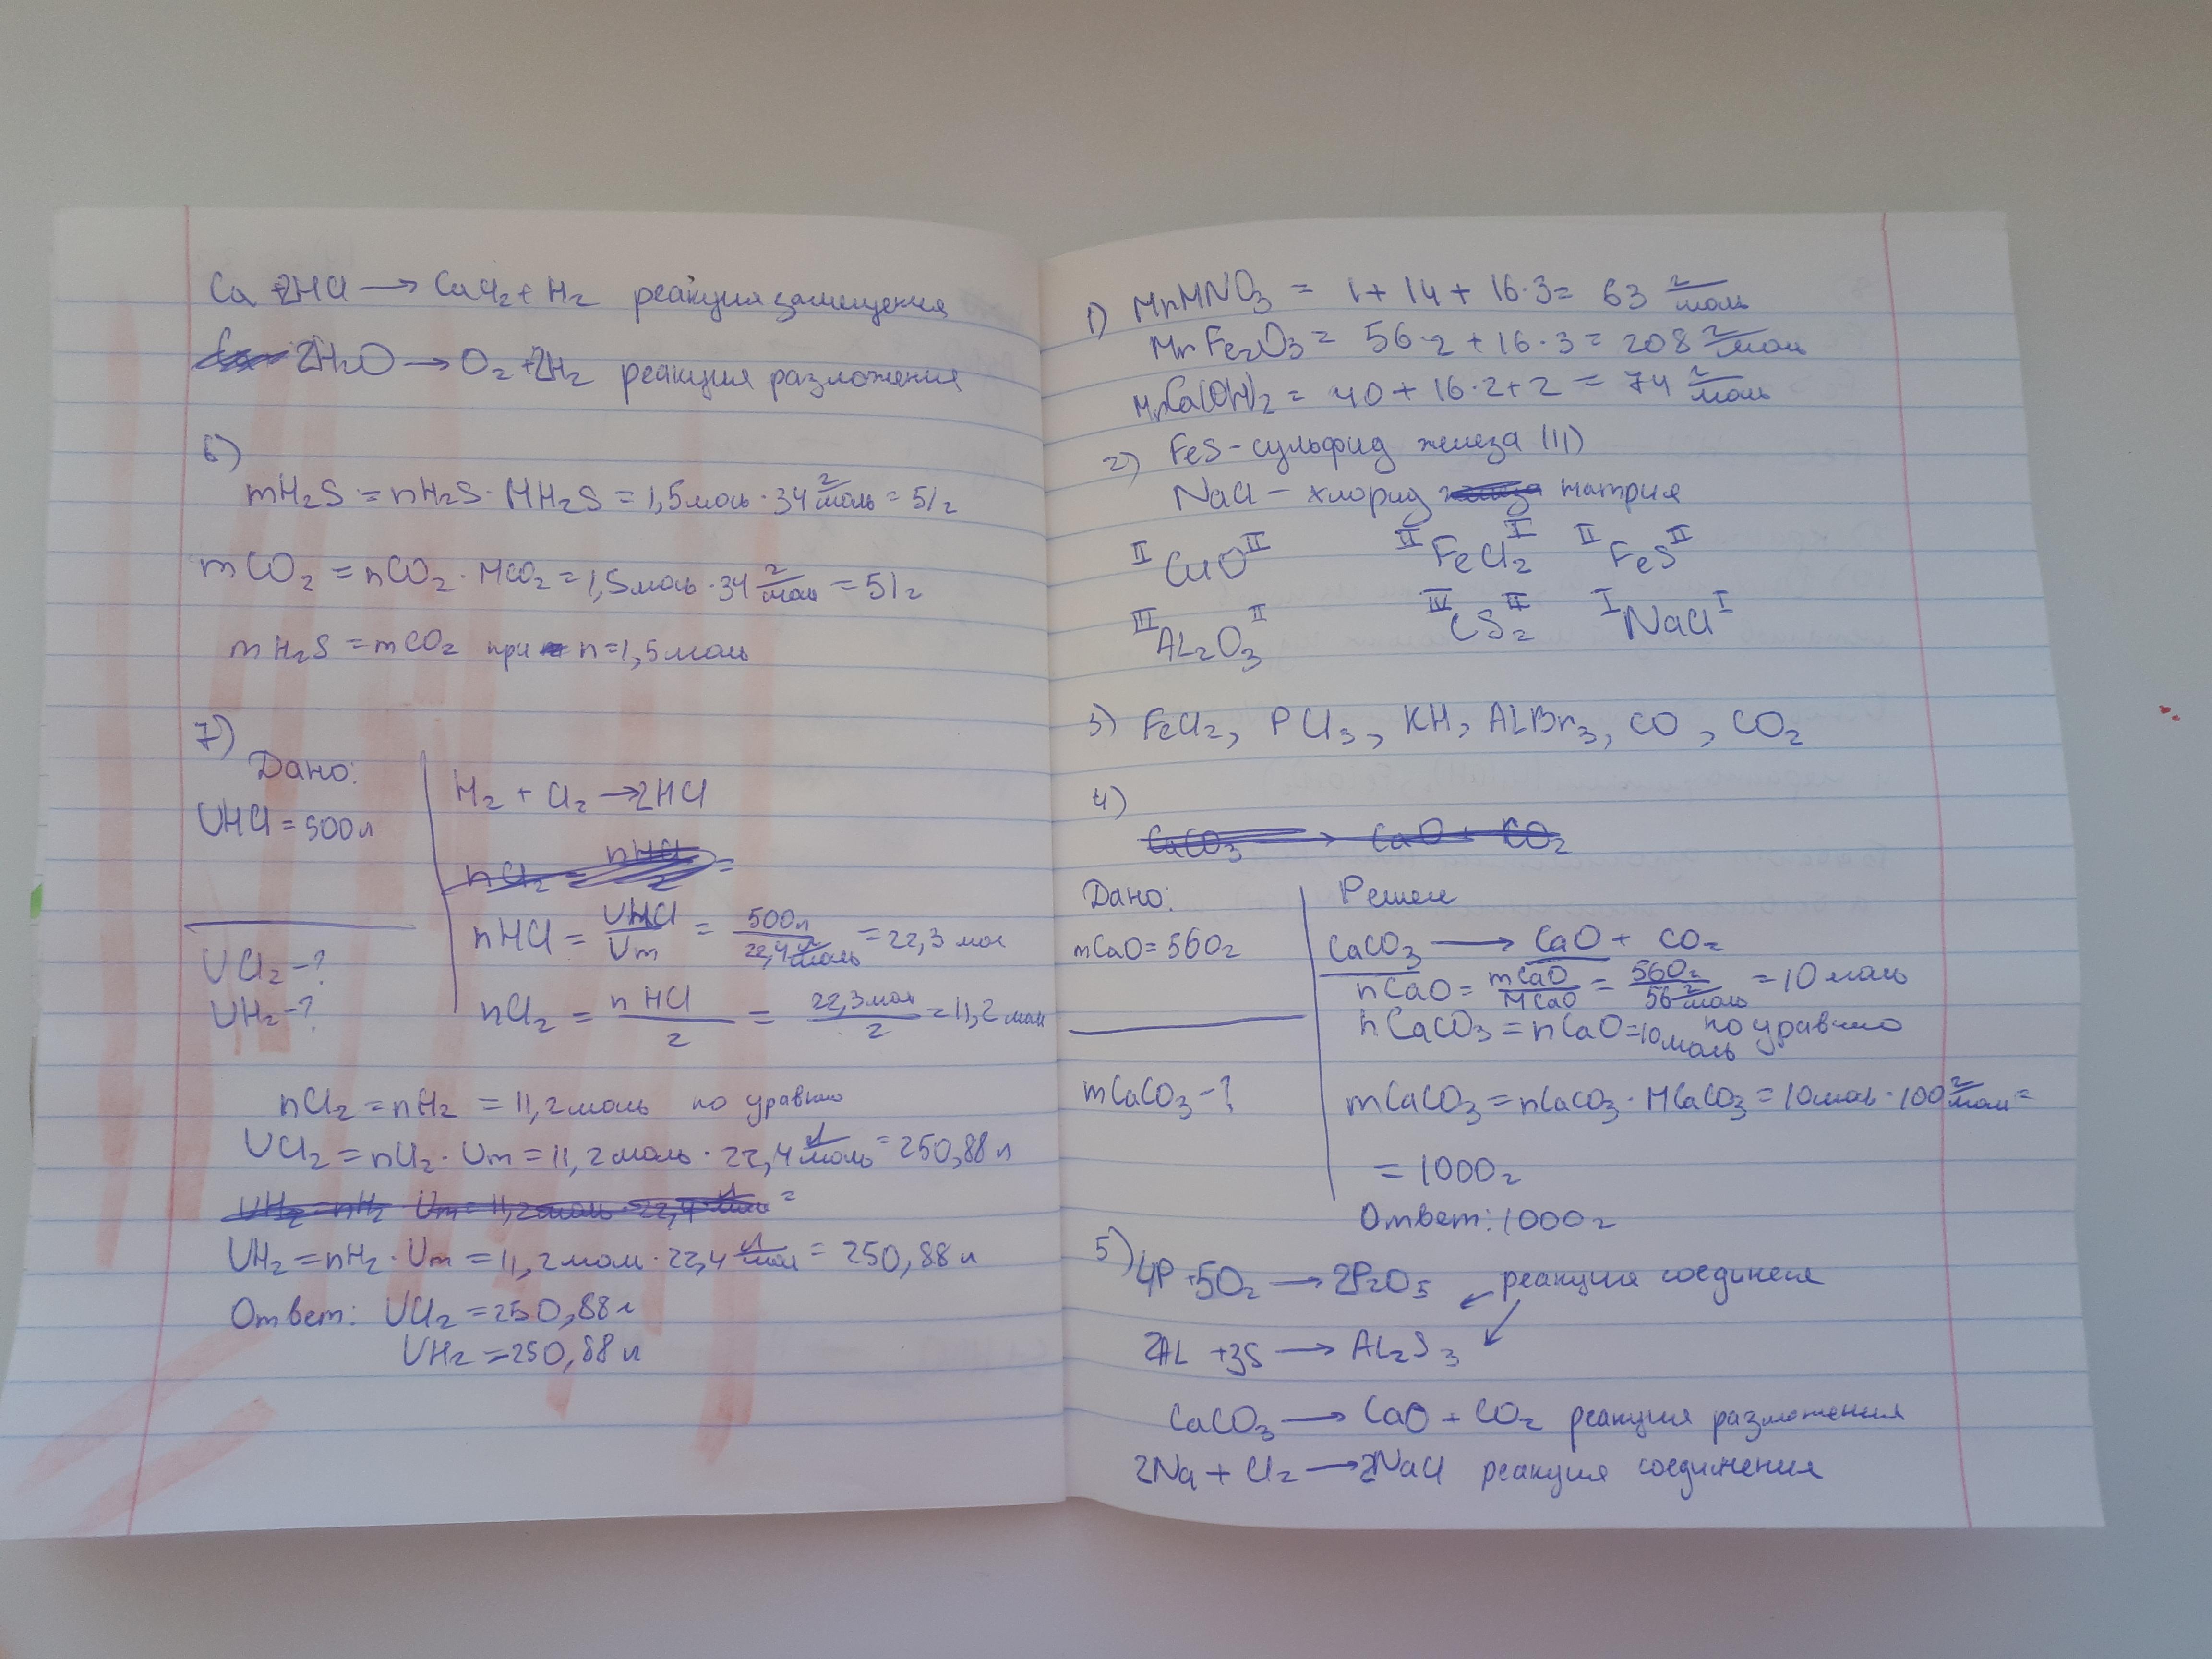 Ca + 2HCl → CaCl₂ + H₂ реакция замещения
2H₂O → O₂ + 2H₂ реакция разложения
6)
mH₂S = nH₂S · MH₂S = 1,5 моль · 34 г/моль = 51г
mCO₂ = nCO₂ · MCO₂ = 1,5 моль · 34 г/моль = 51г
mH₂S = mCO₂ при n = 1,5 моль
7)
Дано:
VHCl = 500 л
VCl₂ - ?
VH₂ - ?
H₂ + Cl₂ → 2HCl
nHCl = VHCl/Vm = 500л/22,4 л/моль = 22,3 мол
nCl₂ = nHCl/2 = 22,3 мол/2 = 11,2 мол
nCl₂ = nH₂ = 11,2 моль по уравнию
VCl₂ = nCl₂ · Vm = 11,2 моль · 22,4 л/моль = 250,88 л
VH₂ = nH₂ · Vm = 11,2 мол · 22,4 л/мол = 250,88 л
Ответ: VCl₂ = 250,88 л
VH₂ = 250,88 л
1) MrHNO₃ = 1 + 14 + 16·3 = 63 г/моль
MrFe₂O₃ = 56·2 + 16·3 = 208 г/моль
MrCa(OH)₂ = 40 + 16·2 + 2 = 74 г/моль
2) FeS - сульфид железа (II)
NaCl - хлорид натрия
II CuO II II FeCl₂ I II FeS II
III AL₂O₃ II IV CS₂ II I NaCl I
3) FeCl₂, PCl₃, KH, ALBr₃, CO, CO₂
4)
CaCO₃ → CaO + CO₂
Дано:
mCaO = 560г
mCaCO₃ - ?
Решен
CaCO₃ → CaO + CO₂
nCaO = mCaO/MCaO = 560г/56 г/моль = 10 моль
nCaCO₃ = nCaO = 10 моль по уравнию
mCaCO₃ = nCaCO₃ · MCaCO₃ = 10 моль · 100 г/мол =
= 1000г
Ответ: 1000г
5) 4P + 5O₂ → 2P₂O₅ реакция соединеия
2AL + 3S → AL₂S₃
CaCO₃ → CaO + CO₂ реакция разложения
2Na + Cl₂ → 2NaCl реакция соединения